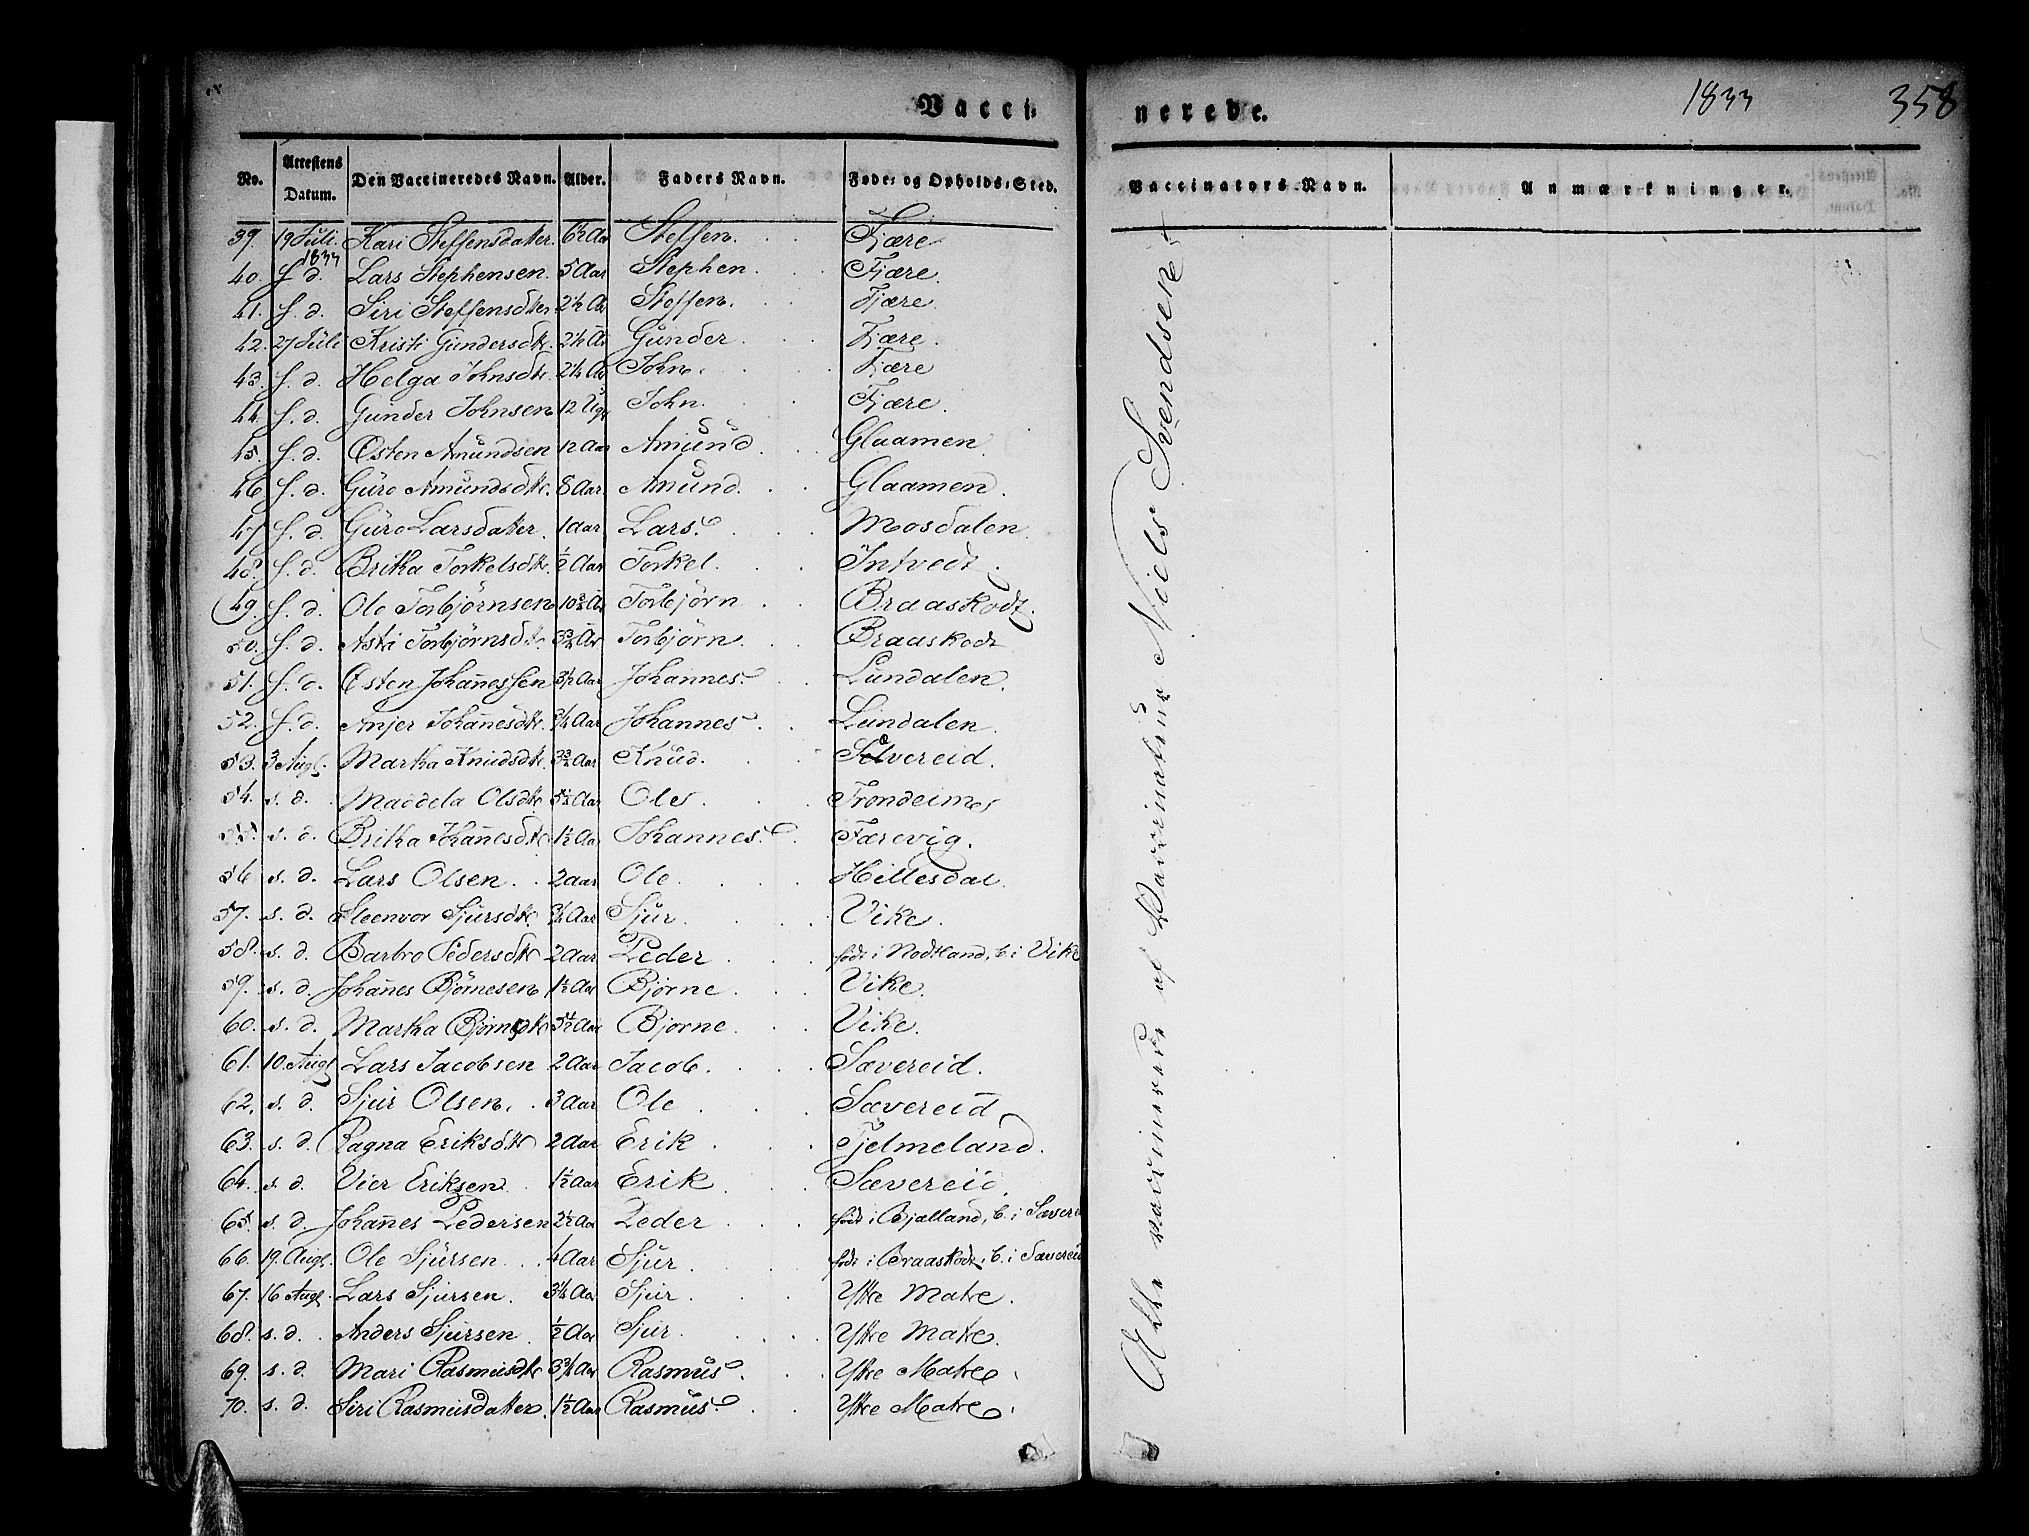 Vacci-
nerede.
1833
358
No. Attestens Datum. Den Vaccineredes Navn. Alder. Faders Navn. Føde- og Opholds-Sted.
Vaccinators Navn. Anmærkninger.
39. 19 Juli 1833 Kari Steffensdatter. 6½ Aar Steffen. Fjære
40. s. d. Lars Stephensen. 5 Aar Stephen Fjære.
41. s. d. Siri Steffensdtr 2½ Ar Steffen. Fjære
42. 27 Juli Kristi Gundersdtr. Gunder Fjære.
43. s. d. Helga Johnsdtr. 2¼ Ar John. Fjære
44. s. d. Gunder Johnsen 12 Ugr John. Fjære.
45. s. d. Østen Amundsen 12 Aar Amund Glaamen.
46 s. d. Guro Amundsdtr. 8 Aar. Amund. Glaamen.
47. s. d. Guro Larsdatter. 1 Aar Lars. Mosdalen.
48. s. d. Britha Torkelsdtr. ½ Aar Torkel. Intvedt.
49. s. d. Ole Torbjørnsen Torbjørn Braaskodt.
50. s. d. Asti Torbjørnsdtr. Torbjørn. Braaskodt
51. s. d. Østen Johannessen Johannes. Lundalen.
52. s. d. Anjer Johanesdtr. ¾ Aar Johannes Lundalen.
53. 3 Augs. Martha Knudsdtr. Knud. Sævereid.
54. s. d. Maddela Olsdtr Ole. Trondeimes
55. s. d. Britha Johanesdtr 1½ Aar Johannes. Færevig.
56 s. d. Lars Olsen. 2 aar Ole. Hillesdal.
57. s. d. Steenvor Sjursdtr. ¾ Aar Sjur Vike.
58. s. d. Barbro Pedersdtr 2 Aar Peder født i Nodtland, b. i Vike
59. s. d. Johanes Bjørnesen 1½ Aar Bjørne Vike.
60. s. d. Martha Bjørnsdtr 5½ Aar Bjorne. Vike.
61. 10. Augs Lars Jacobsen 2 Aar Jacob. Sævereid.
62. s. d. Sjur Olsen. 3 Aar Ole Sævereid
63. s. d. Ragna Eriksdtr 2 Aar Erik Fjelmeland.
64. s. d. Vier Eriksen 1½ Aar Erik Sævereid.
65. s. d. Johanes Pedersen 2½ Aar Peder født i Bjælland, b. i Sæverei
66. 19. Augs. Ole Sjursen. 4 Aar Sjur født i Braaskodt, b. i Sævereid
67. 16 Augs. Lars Sjursen. 3¼ Aar Sjur Yttre Matre.
68. s. d. Anders Sjursen ½ Aar Sjur. Yttre Matre.
69. s. d. Mari Rasmusdtr 3¾ Aar Rasmus. Yttre Matre.
70. s. d. Siri Rasmusdatter. 1½ Aar Rasmus. Yttre Matre.
Alle vaccinerede af Vaccinateur Niels Svendsen